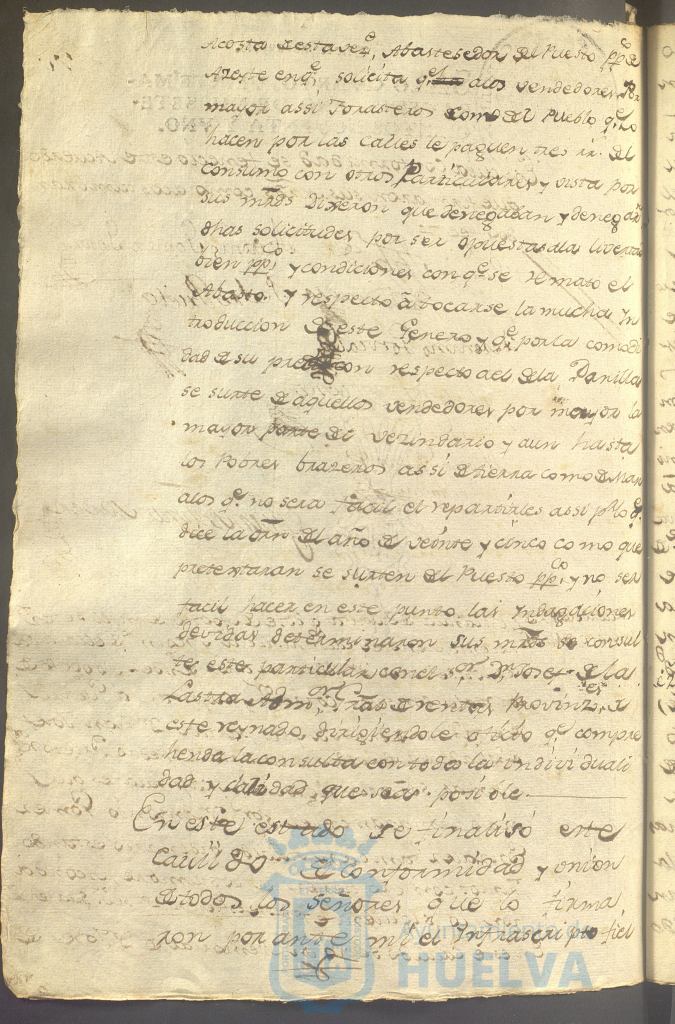 Acosta de esta vez.ª, Abastesedor del Puesto pp.co de
Azeite en q.e solicita q.e a los vendedores Por
mayor assi Forasteros como del Pueblo q.e lo
hacen por las calles le paguen tres rr. del
Consumo con otros Particulares y vista por
sus m̃rds Dixeron que denegaban y denegarõ
dhas solicitudes por ser opuestas a la libertad
bien pp.co y condiciones con q.e se remato el
Abasto. y respecto â tocarse la mucha In
troduccion de este Genero y q.e por la comodi
dad de su precio con respecto al de la Panilla
se surte de aquellos vendedores por mayor la
mayor parte del vezindario y aun hasta
los Pobres brazeros assi de tierra como de Mar
a los q.e no sera facil el repartirles assi p.r lo q.e
dice la òrn del año de veinte y cinco como que
pretextaran se surten del Puesto pp.co y no ser
facil hacer en este punto las Yndagaciones
devidas determinaron sus m̃rds se consul
te este particular con el s.or D.n Josef de la
Lastra Adm.or de Rentas Provinz.es de
este reynado, dirigiendole oficio q.e compre
henda la consulta con toda la individuali
dad y calidad que sea posible.
En este estado se finalisó este
Cavildo de Conformidad y union
de todos los Señores que lo firma
ron por ante mi el Infrascripto fiel
Ayuntamiento de
HUELVA